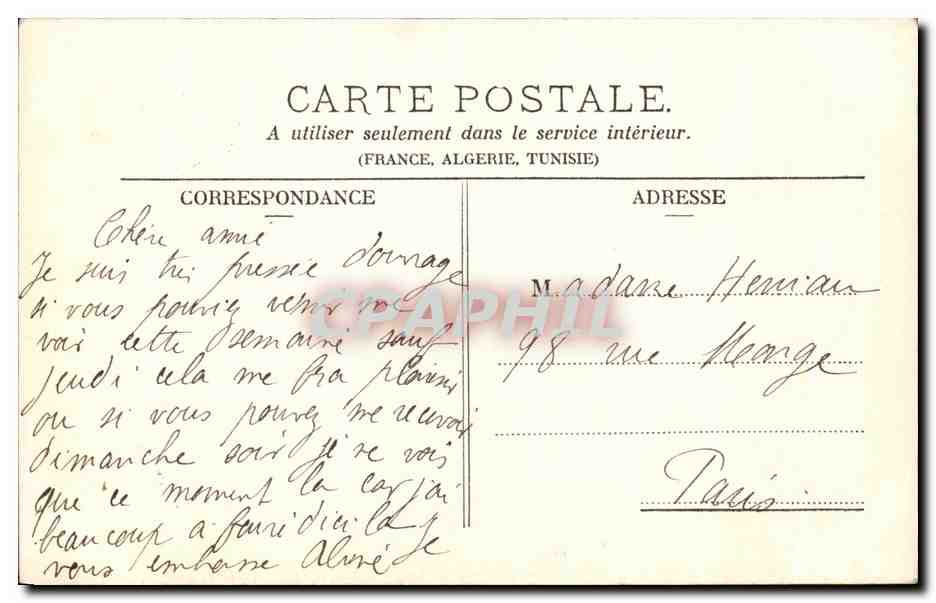 CARTE POSTALE.
A utiliser seulement dans le service intérieur.
(FRANCE, ALGERIE, TUNISIE)
CORRESPONDANCE
Chère amie
Je suis très pressée d'ouvrage
si vous pouviez venir me
voir cette semaine sauf
jeudi cela me fra plaisir
ou si vous pouvez me recevoir
dimanche soir je ne vois
que ce moment la car j'ai
beaucoup a faire d'ici la Je
vous embrasse
ADRESSE
Madame
98 rue Monge
Paris
CPAPHIL